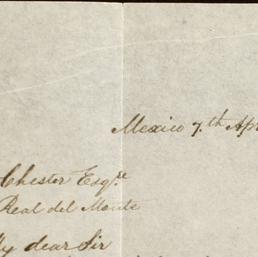 Mexico 7.th Apr
Chester Esqre
Real del Monte
My dear Sir